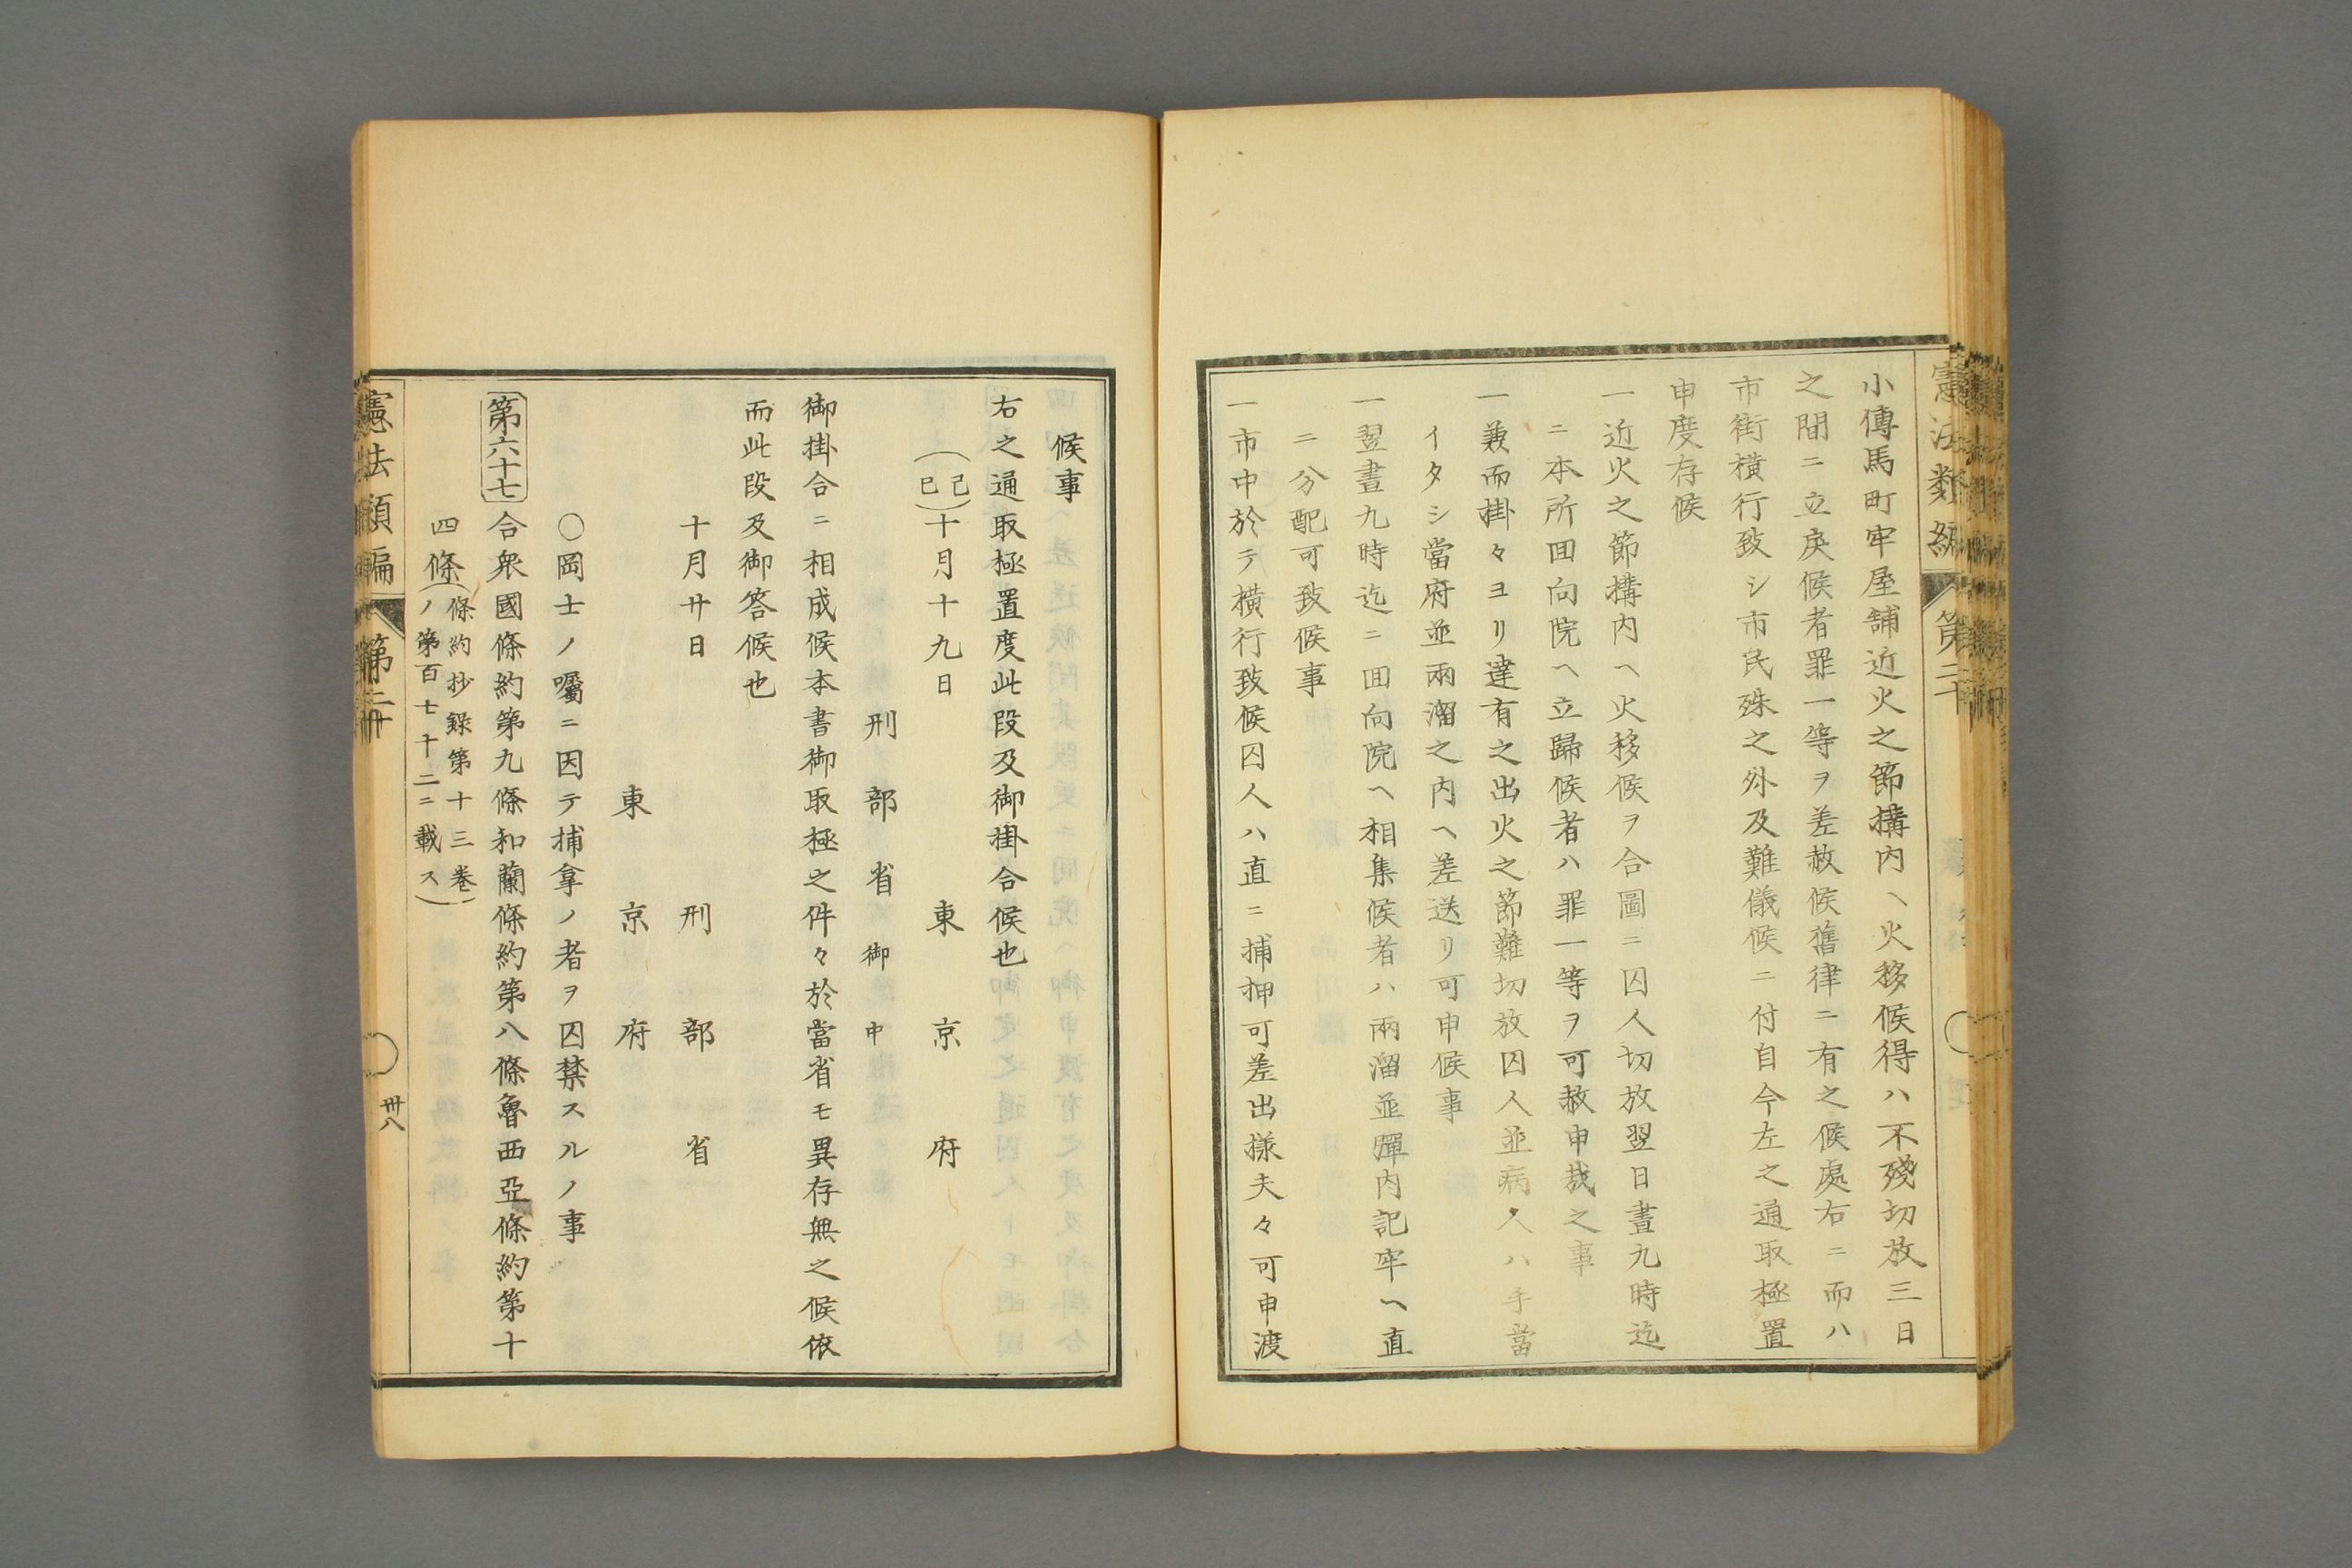 小傳馬町牢屋舗近火之節搆内ヘ火移候得ハ不殘切放三日
之間ニ立戾候者罪一等ヲ差赦候舊律ニ有之候處右ニ而ハ
市街橫行致シ市民殊之外及難儀候ニ付自今左之通取極置
申度存候
一近火之節搆内ヘ火移候ヲ合圖ニ囚人切放翌日晝九時迄
ニ本所囬向院ヘ立歸候者ハ罪一等ヲ可赦申哉之事
一兼而掛々ヨリ達有之出火之節難切放囚人並病人ハ手當
イタシ當府並兩溜之内ヘ差送リ可申候事
一翌晝九時迄ニ囬向院ヘ相集候者ハ兩溜並彈内記牢ヘ直
ニ分配可致候事
一市中於テ橫行致候囚人ハ直ニ捕押可差出樣夫々可申渡
候事
右之通取極置度此段及御掛合候也
(己巳)十月十九日 東京府
刑部省御中
御掛合ニ相成候本書御取極之件々於當省モ異存無之候依
而此段及御答候也
十月廿日 刑部省
東京府
○岡士ノ囑ニ因テ捕拿ノ者ヲ囚禁スルノ事
第六十七 合衆國條約第九條和蘭條約第八條魯西亞條約第十
四條(條約抄錄第十三卷ノ第百七十二ニ載ス)
憲法類編 第二十
卅八